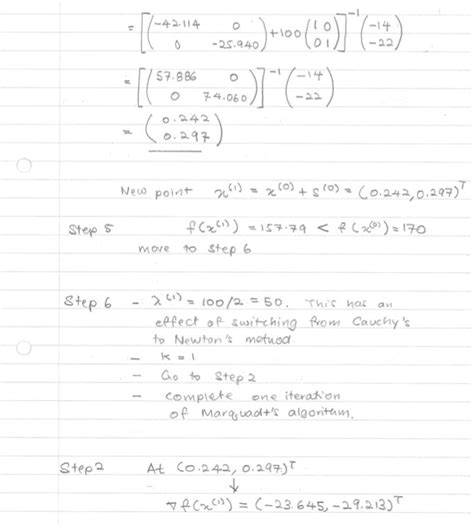 = [(-42.114 0
0 -25.940) + 100 (1 0
0 1)]⁻¹ (-14
-22)
= [(57.886 0
0 74.060)]⁻¹ (-14
-22)
= (0.242
0.297)
New point x⁽¹⁾ = x⁽⁰⁾ + s⁽⁰⁾ = (0.242, 0.297)ᵀ
Step 5 f(x⁽¹⁾) = 157.79 < f(x⁽⁰⁾) = 170
move to step 6
Step 6 - λ⁽¹⁾ = 100/2 = 50. This has an
effect of switching from Cauchy's
to Newton's method
- k = 1
- Go to Step 2
- complete one iteration
of Marquadt's algorithm.
Step 2 At (0.242, 0.297)ᵀ
↓
∇f(x⁽¹⁾) = (-23.645, -29.213)ᵀ